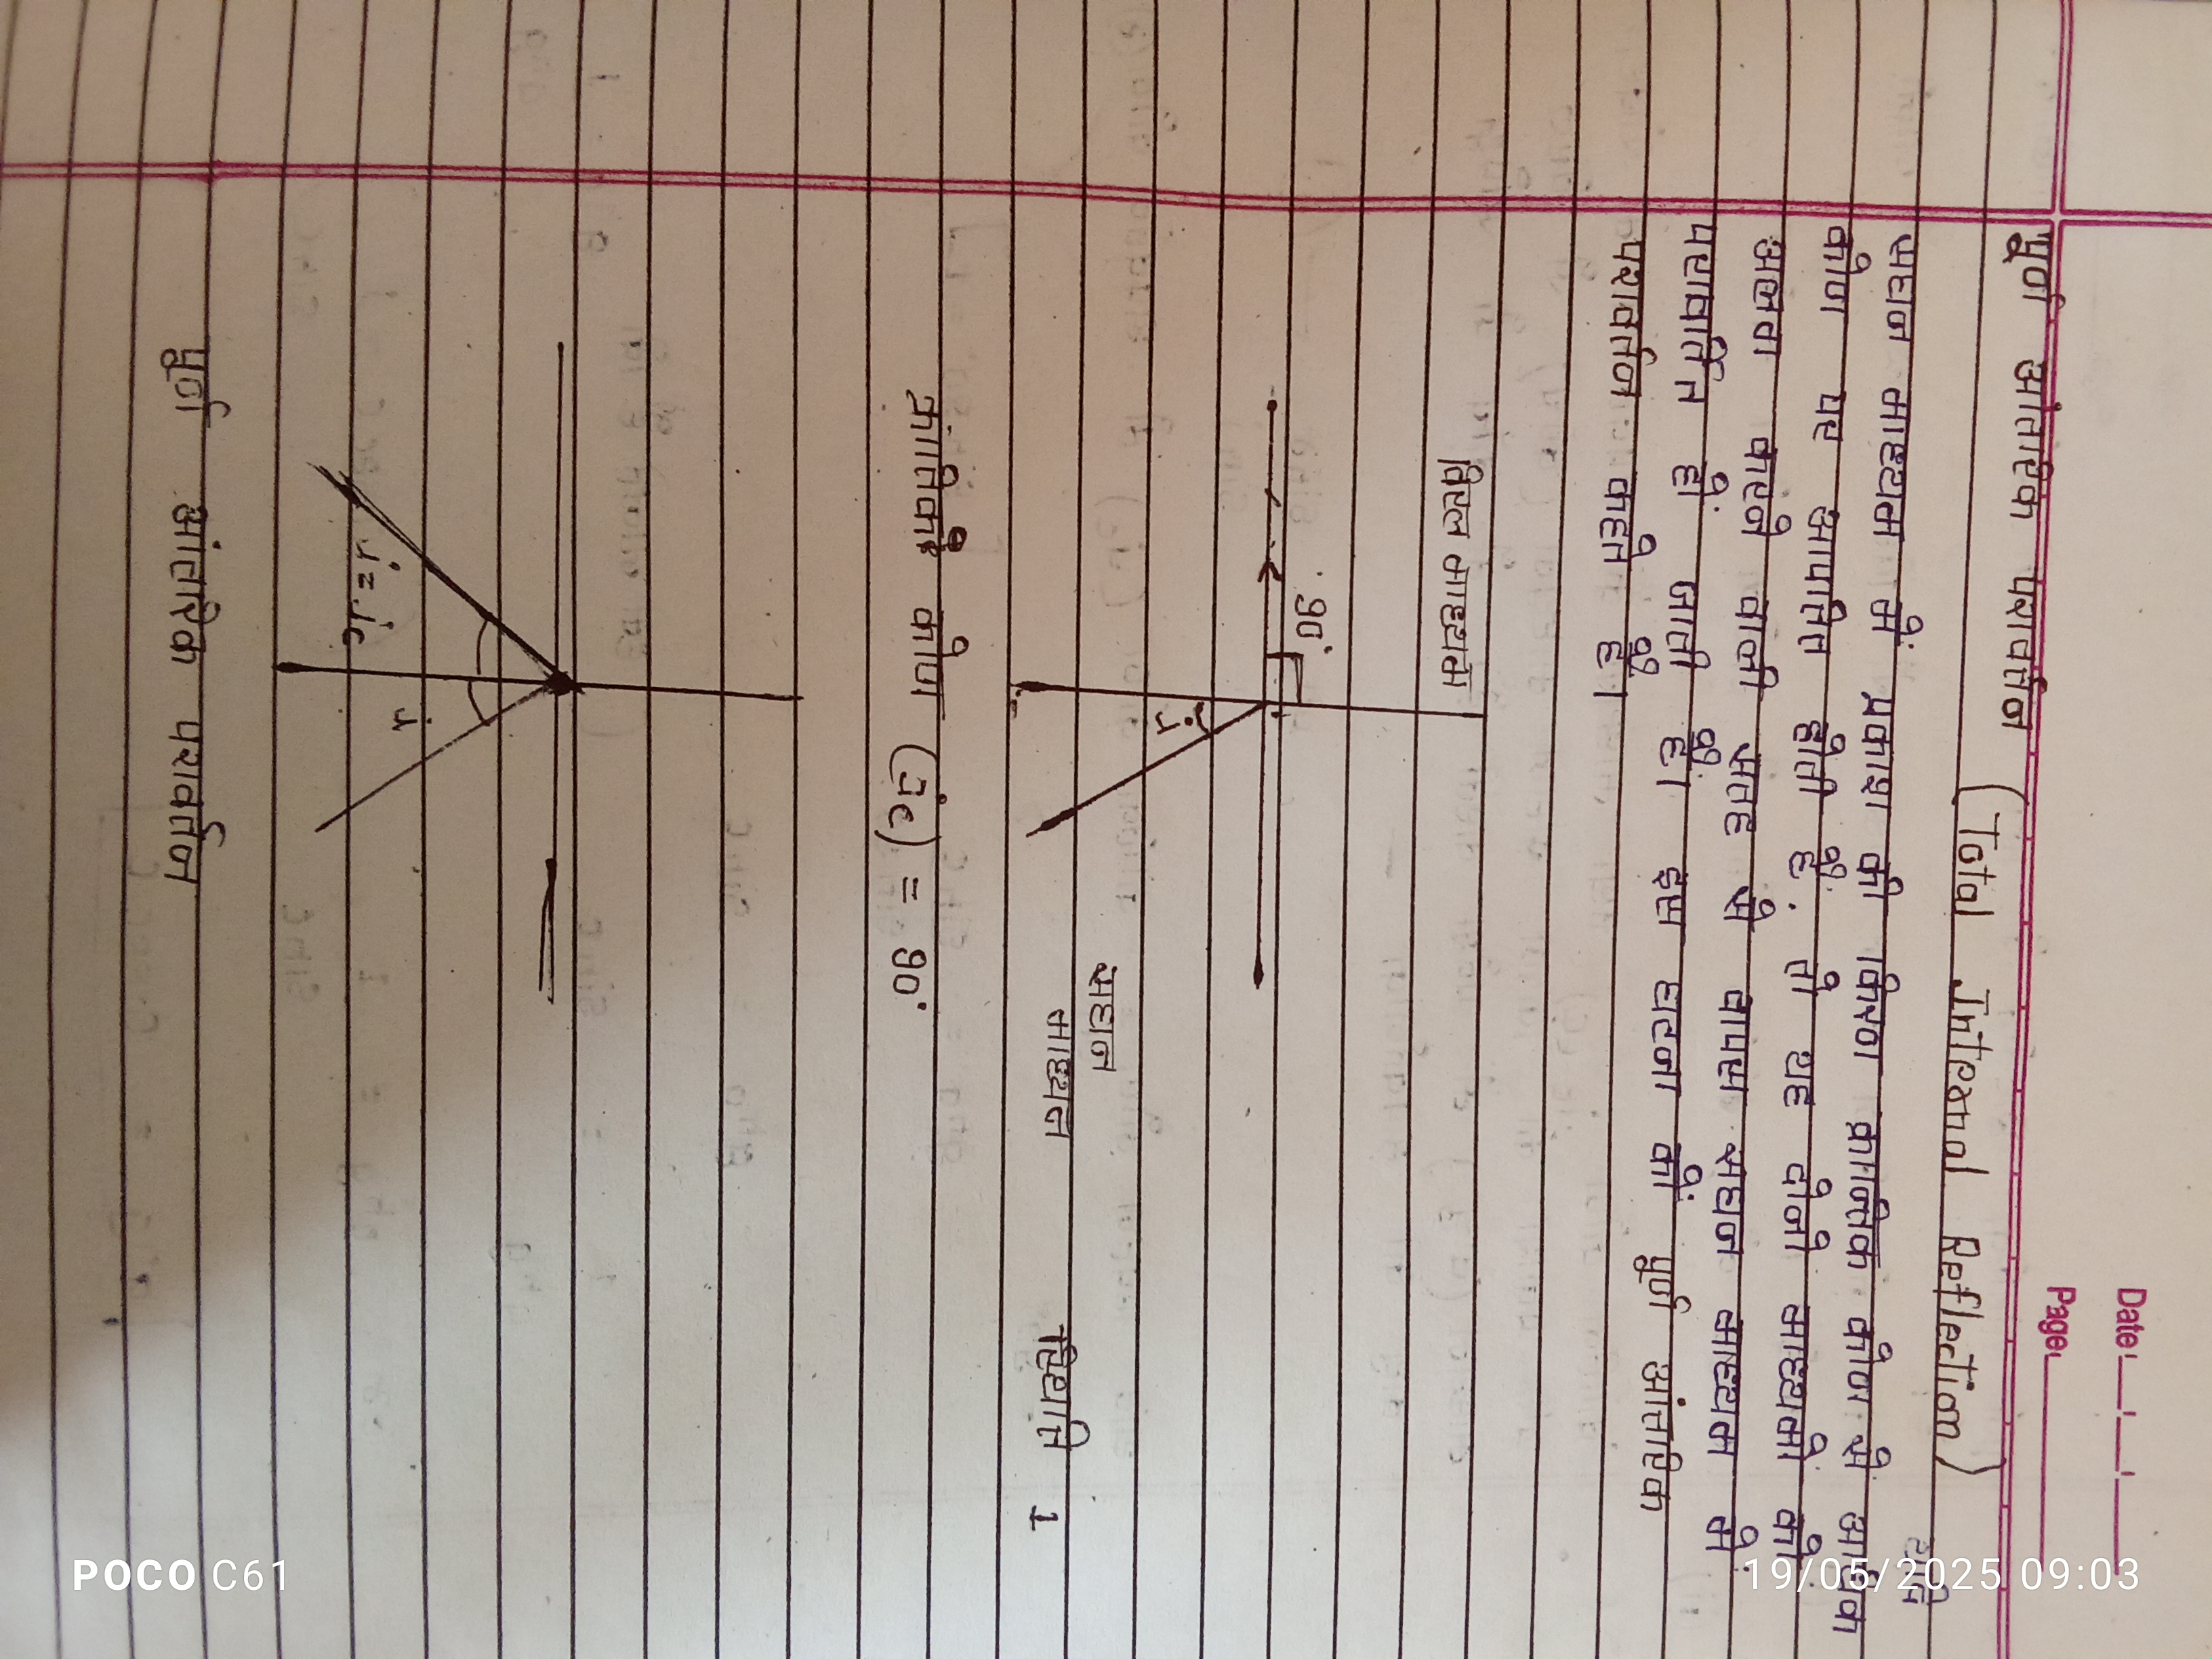 Date:
Page:
पूर्ण आंतरिक परावर्तन (Total Internal Reflection)
यदि
सघन माध्यम में प्रकाश की किरण क्रान्तिक कोण से अधिक
कोण पर आपतित होती है, तो यह दोनो माध्यमों को
अलग करने वाली सतह से वापस सघन माध्यम में
परावर्तित हो जाती है। इस घटना को पूर्ण आंतरिक
परावर्तन कहते है।
विरल माध्यम
90°
i
सघन
माध्यम
स्थिति 1
क्रांतिक कोण (ic) = 90°
i=ic
r
पूर्ण आंतरिक परावर्तन
POCO C61
19/05/2025 09:03